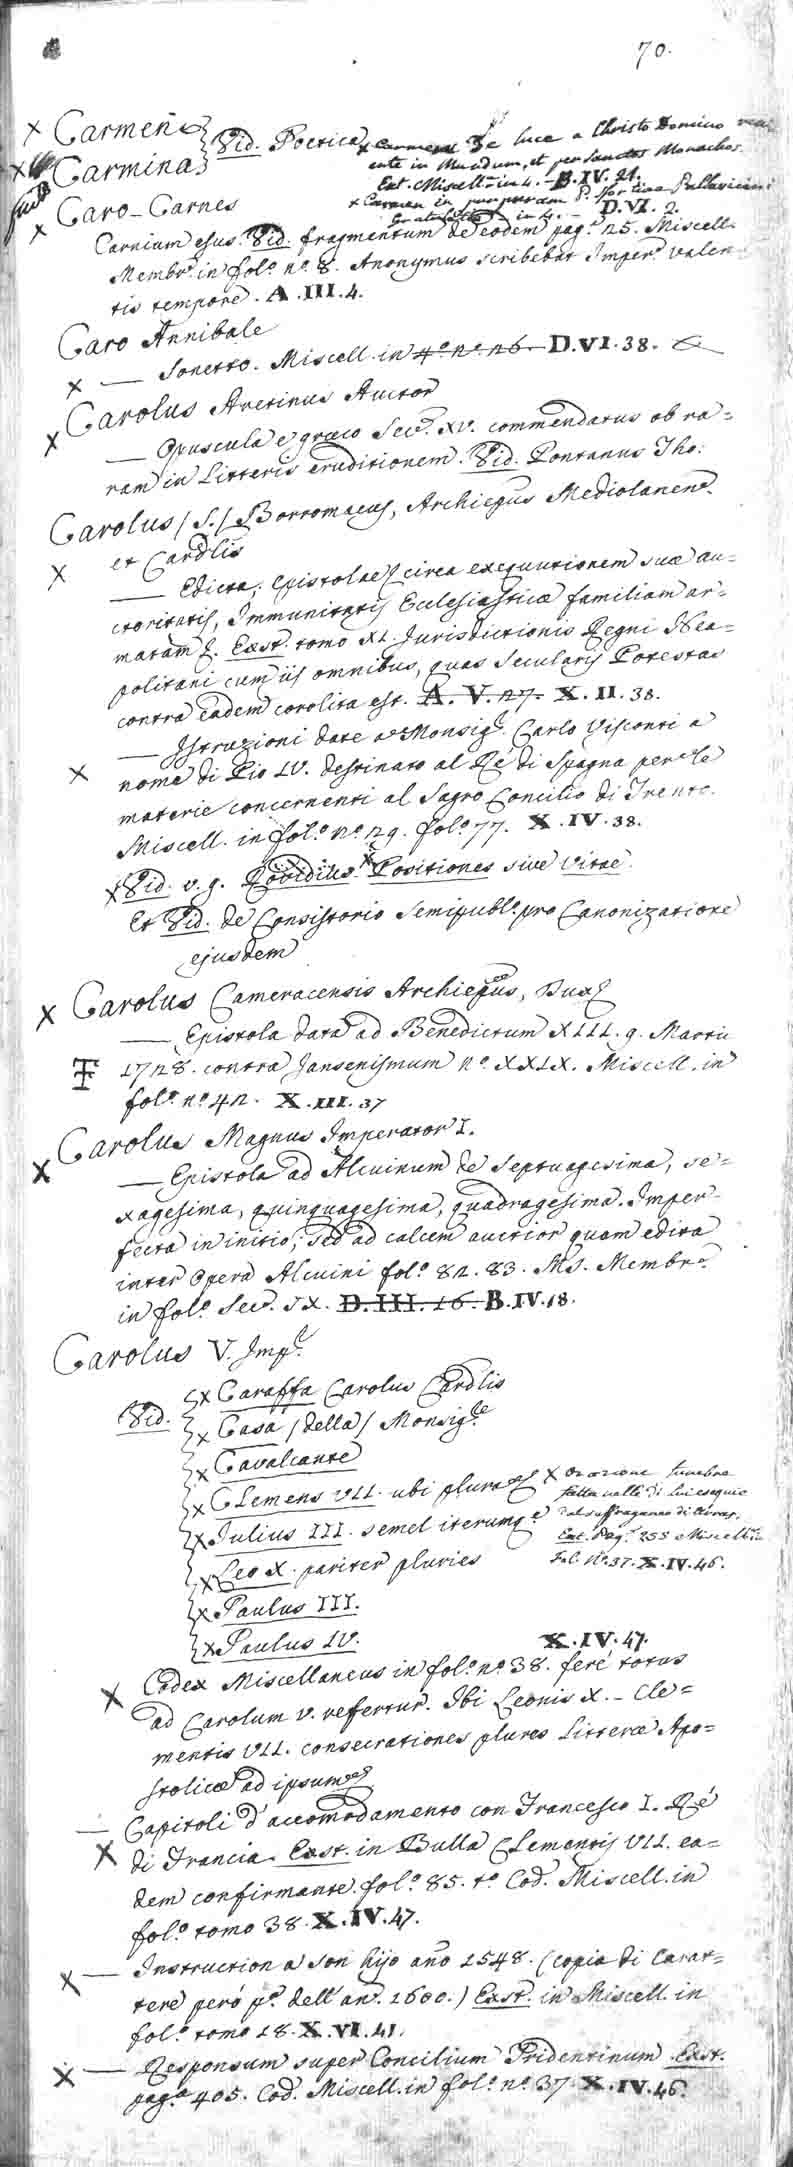 70.
x Carmen
x Carmina } Vid. Poetica
x Carmen De luce a Christo Domino
in Mundum, et per Sanctos Monachos.
Ext. Miscell. in 4. - B.IV.21.
x Carmen in purpuram P. Sfortiae Pallavicini
in 4. - D.VI.2.
x Caro-Carnes
Carnium esus. Vid. fragmentum de eodem pag.ª 25. Miscell.
Membr. in fol.º n.º 8. Anonymus scribebat Imper.e Valen-
tis tempore. A.III.4.
Caro Annibale
x — Sonetto. Miscell. in 4.º n.º 26. D.VI.38.
x Carolus Aretinus Auctor
— Opuscula e graeco Sec. XV. commendatus ob ra=
ram in Litteris eruditionem. Vid. Pontanus Tho:
Carolus /S./ Borromaeus, Archiepus Mediolanen.
et Cardlis
x — Edicta, Epistolae & circa exequutionem suae au=
ctoritatis, Immunitatis Ecclesiasticae familiam ar=
matam &. Exst. tomo XI. Jurisdictionis Regni Nea=
politani cum iis omnibus, quas Secularis Potestas
contra eadem molita est. A.V.27. X.II.38.
— Istruzioni date a Monsig.r Carlo Visconti a
x nome di Pio IV. destinato al Rè di Spagna per le
materie concernenti al Sagro Concilio di Trento.
Miscell. in fol.º n.º 29. fol.º 77. X.IV.38.
x Vid. v.g. Rovidius. x Positiones sive Vitae.
Et Vid. de Consistorio Semipubl.º pro Canonizatione
ejusdem
x Carolus Cameracensis Archiepus, Dux &
— Epistola data ad Benedictum XIII. 9. Martii
1728. contra Jansenismum n.º XXIX. Miscell. in
fol.º n.º 42. X.III.37
x Carolus Magnus Imperator I.
— Epistola ad Alcuinum de Septuagesima, se=
xagesima, quinquagesima, quadragesima. Imper-
fecta in initio; sed ad calcem auctior quam edita
inter Opera Alcuini fol.º 82. 83. Ms. Membr.
in fol.º Sec. IX. D.III.16. B.IV.18.
Carolus V. Imp.r
Vid. x Caraffa Carolus Cardlis
x Casa /della/ Monsig.re
x Cavalcante
x Clemens VII. ubi plura &
x Julius III. semel iterumq.e
x Leo X. pariter pluries
x Paulus III.
x Paulus IV.
x Orazione funebre
fatta nelle di lui esequie
dal suffraganeo di Arras.
Ext. Pag.ª 255 Miscell. in
Fol. N.º 37. X.IV.46.
X.IV.47.
x Codex Miscellaneus in fol.º n.º 38. ferè totus
ad Carolum V. refertur. Ibi Leonis X. - Cle=
mentis VII. consecrationes plures Litterae Apo=
stolicae ad ipsum &
— Capitoli d'accomodamento con Francesco I. Rè
x di Francia. Exst. in Bulla Clementis VII. ea=
dem confirmante. fol.º 85. t.º Cod. Miscell. in
fol.º tomo 38. X.IV.47.
x — Instruction a son hijo año 1548. (copia di carat=
tere però p.º dell'an. 1600.) Exst. in Miscell. in
fol.º tomo 18. X.VI.41.
x — Responsum super Concilium Tridentinum Exst.
pag.ª 405. Cod. Miscell. in fol.º n.º 37. X.IV.46.